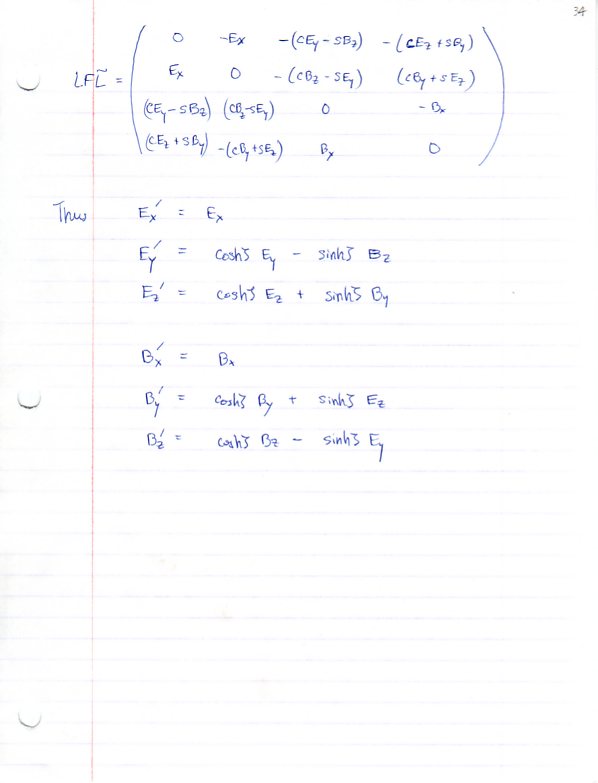 34
0 -Eₓ -(cE_y - sB_z) -(cE_z + sB_y)
LFL̃ = Eₓ 0 -(cB_z - sE_y) (cB_y + sE_z)
(cE_y - sB_z) (cB_z - sE_y) 0 -Bₓ
(cE_z + sB_y) -(cB_y + sE_z) Bₓ 0
Thus Eₓ′ = Eₓ
E_y′ = coshζ E_y - sinhζ B_z
E_z′ = coshζ E_z + sinhζ B_y
Bₓ′ = Bₓ
B_y′ = coshζ B_y + sinhζ E_z
B_z′ = coshζ B_z - sinhζ E_y